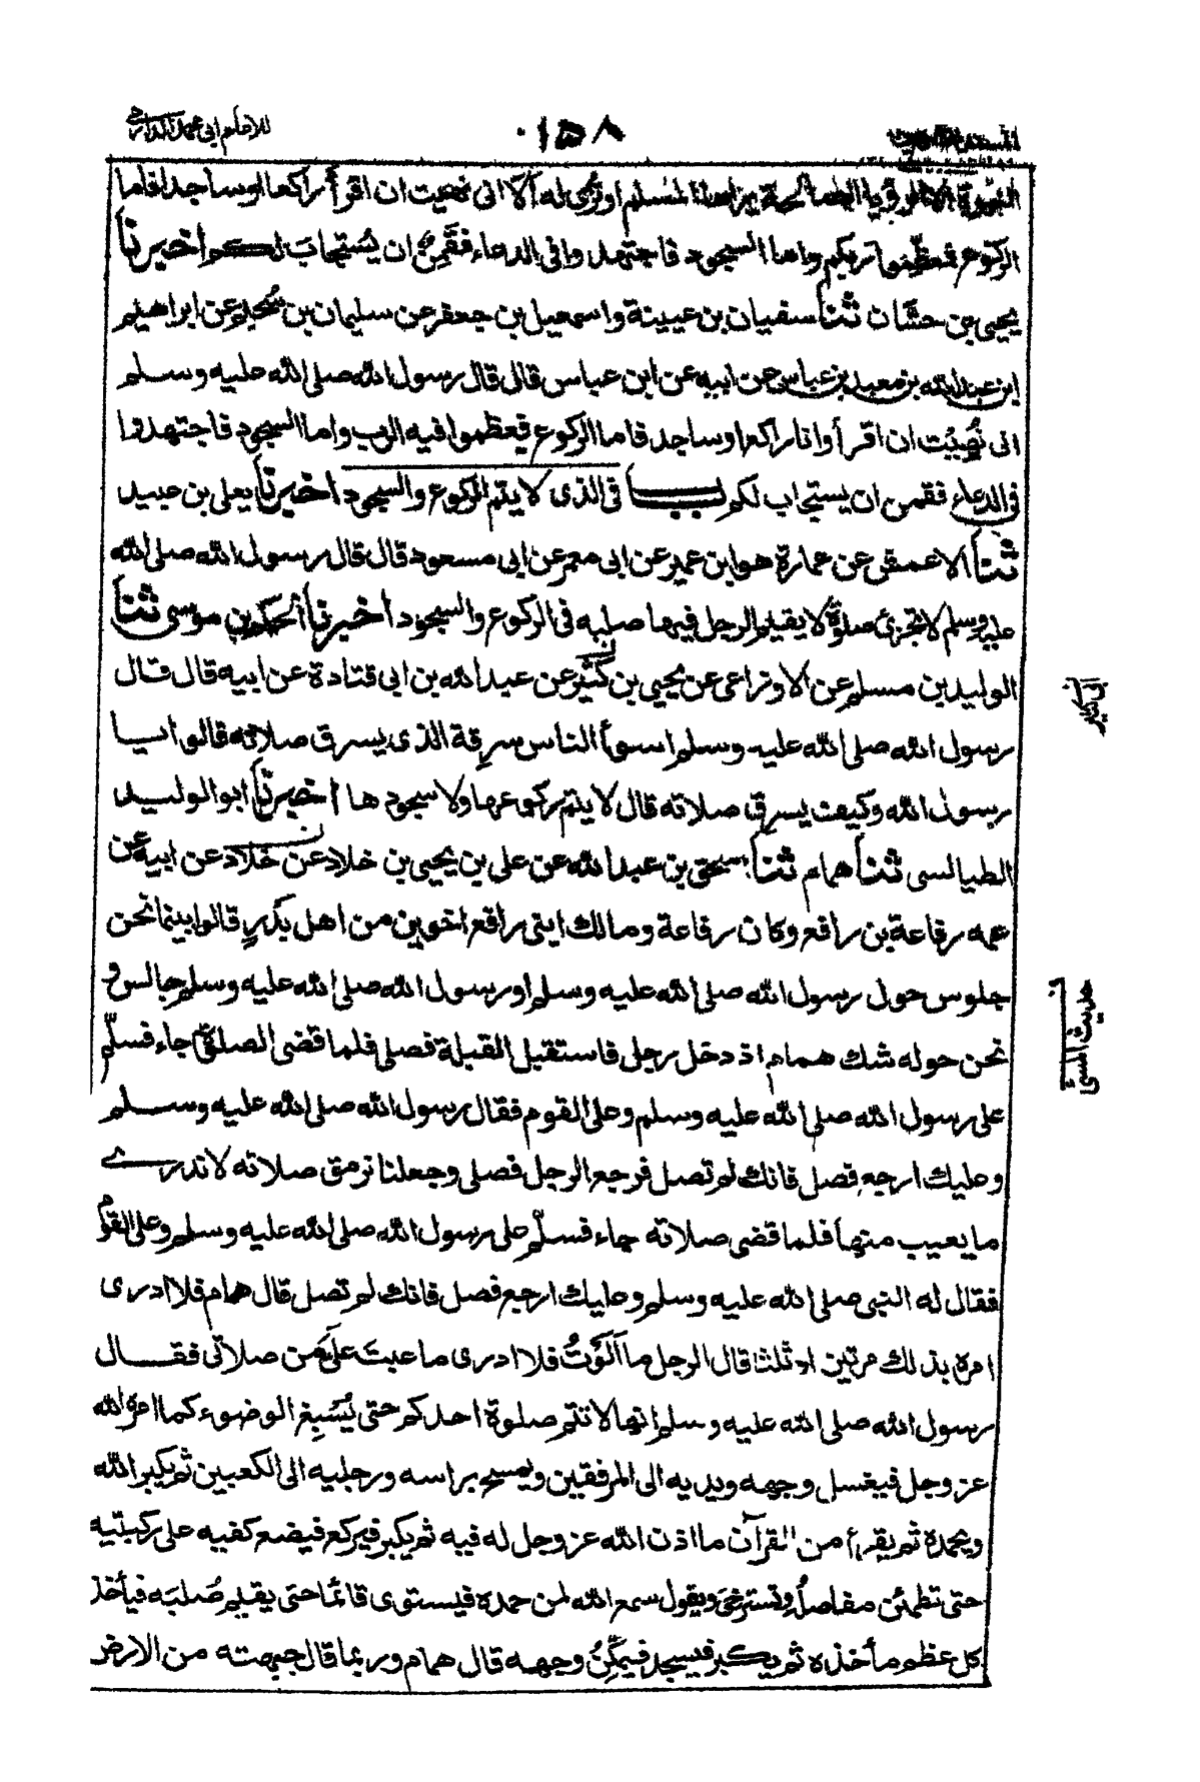 للامام ابي محمد الدارمي
١٥٨
النبوة الا الرؤيا الصالحة يراها المسلم او ترى له الا انى نهيت ان اقرأ راكعا او ساجدا فاما
الركوع فعظموا ربكم واما السجود فاجتهدوا فى الدعاء فقمن ان يستجاب لكم اخبرنا
يحيى بن حسّان ثنا سفيان بن عيينة واسمعيل بن جعفر عن سليمان بن سحيم عن ابراهيم
ابن عبد الله بن معبد بن عباس عن ابيه عن ابن عباس قال قال رسول الله صلى الله عليه وسلم
انى نهيت ان اقرأ وانا راكع او ساجد فاما الركوع فعظموا فيه الرب واما السجود فاجتهدوا
فى الدعاء فقمن ان يستجاب لكم باب فى الذى لا يتم الركوع والسجود اخبرنا يعلى بن عبيد
ثنا الاعمش عن عمارة هو ابن عمير عن ابى معمر عن ابى مسعود قال قال رسول الله صلى الله
عليه وسلم لا تجزئ صلوة لا يقيم الرجل فيها صلبه فى الركوع والسجود اخبرنا الحكم بن موسى ثنا
الوليد بن مسلم عن الاوزاعى عن يحيى بن كثير عن عبد الله بن ابى قتادة عن ابيه قال قال
ابى كثير
رسول الله صلى الله عليه وسلم اسوأ الناس سرقة الذى يسرق صلاته قالوا يا
رسول الله وكيف يسرق صلاته قال لا يتم ركوعها ولا سجودها اخبرنا ابو الوليد
الطيالسى ثنا همام ثنا اسحق بن عبد الله عن على بن يحيى بن خلاد عن خلاد عن ابيه عن
عمه رفاعة بن رافع وكان رفاعة ومالك ابنى رافع اخوين من اهل بدر قالوا بينما نحن
جلوس حول رسول الله صلى الله عليه وسلم او رسول الله صلى الله عليه وسلم جالس و
حديث المسئ
نحن حوله شك همام اذ دخل رجل فاستقبل القبلة فصلى فلما قضى الصلوة جاء فسلّم
على رسول الله صلى الله عليه وسلم وعلى القوم فقال رسول الله صلى الله عليه وسلم
وعليك ارجع فصل فانك لم تصل فرجع الرجل فصلى وجعلنا نرمق صلاته لا ندرى
ما يعيب منها فلما قضى صلاته جاء فسلّم على رسول الله صلى الله عليه وسلم وعلى القوم
فقال له النبى صلى الله عليه وسلم وعليك ارجع فصل فانك لم تصل قال همام فلا ادرى
امره بذلك مرتين او ثلثا قال الرجل ما اَلَوْتُ فلا ادرى ما عبت علىّ من صلاتى فقال
رسول الله صلى الله عليه وسلم انها لا تتم صلوة احدكم حتى يُسْبِغ الوضوء كما امره الله
عز وجل فيغسل وجهه ويديه الى المرفقين ويمسح براسه ورجليه الى الكعبين ثم يكبر الله
ويحمده ثم يقرأ من القرآن ما اذن الله عز وجل له فيه ثم يكبر فيركع فيضع كفيه على ركبتيه
حتى تطمئن مفاصله وتسترخى ويقول سمع الله لمن حمده فيستوى قائما حتى يقيم صُلبَه فيأخذ
كل عظم مأخذه ثم يكبر فيسجد فيمكّنُ وجهه قال همام وربما قال جبهته من الارض